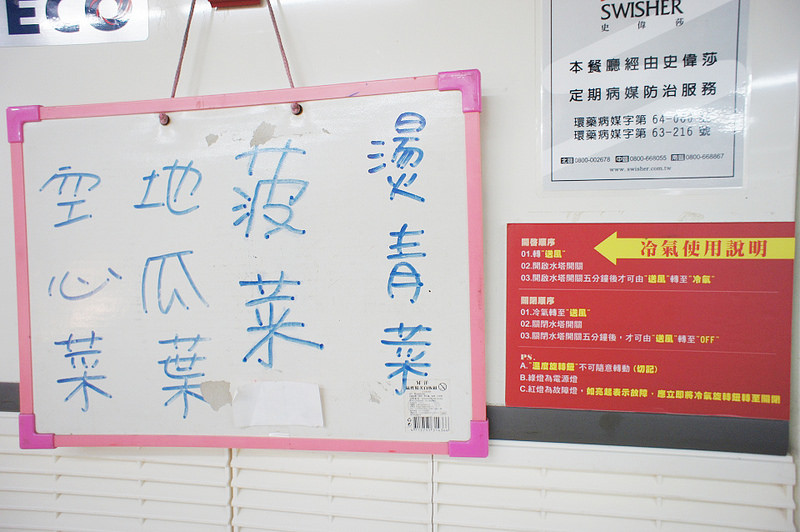 ECO
燙青菜
菠菜
地瓜葉
空心菜
SWISHER
史偉莎
本餐廳經由史偉莎
定期病媒防治服務
環藥病媒字第 64-0 號
環藥病媒字第 63-216 號
北區 0800-002678 中區 0800-668055 南區 0800-668867
www.swisher.com.tw
冷氣使用說明
開啟順序
01.轉"送風"
02.開啟水塔開關
03.開啟水塔開關五分鐘後才可由"送風"轉至"冷氣"
關閉順序
01.冷氣轉至"送風"
02.關閉水塔開關
03.關閉水塔開關五分鐘後，才可由"送風"轉至"OFF"
PS.
A."溫度旋轉鈕"不可隨意轉動(切記)
B.綠燈為電源燈
C.紅燈為故障燈，如亮起表示故障，應立即將冷氣旋轉鈕轉至關閉